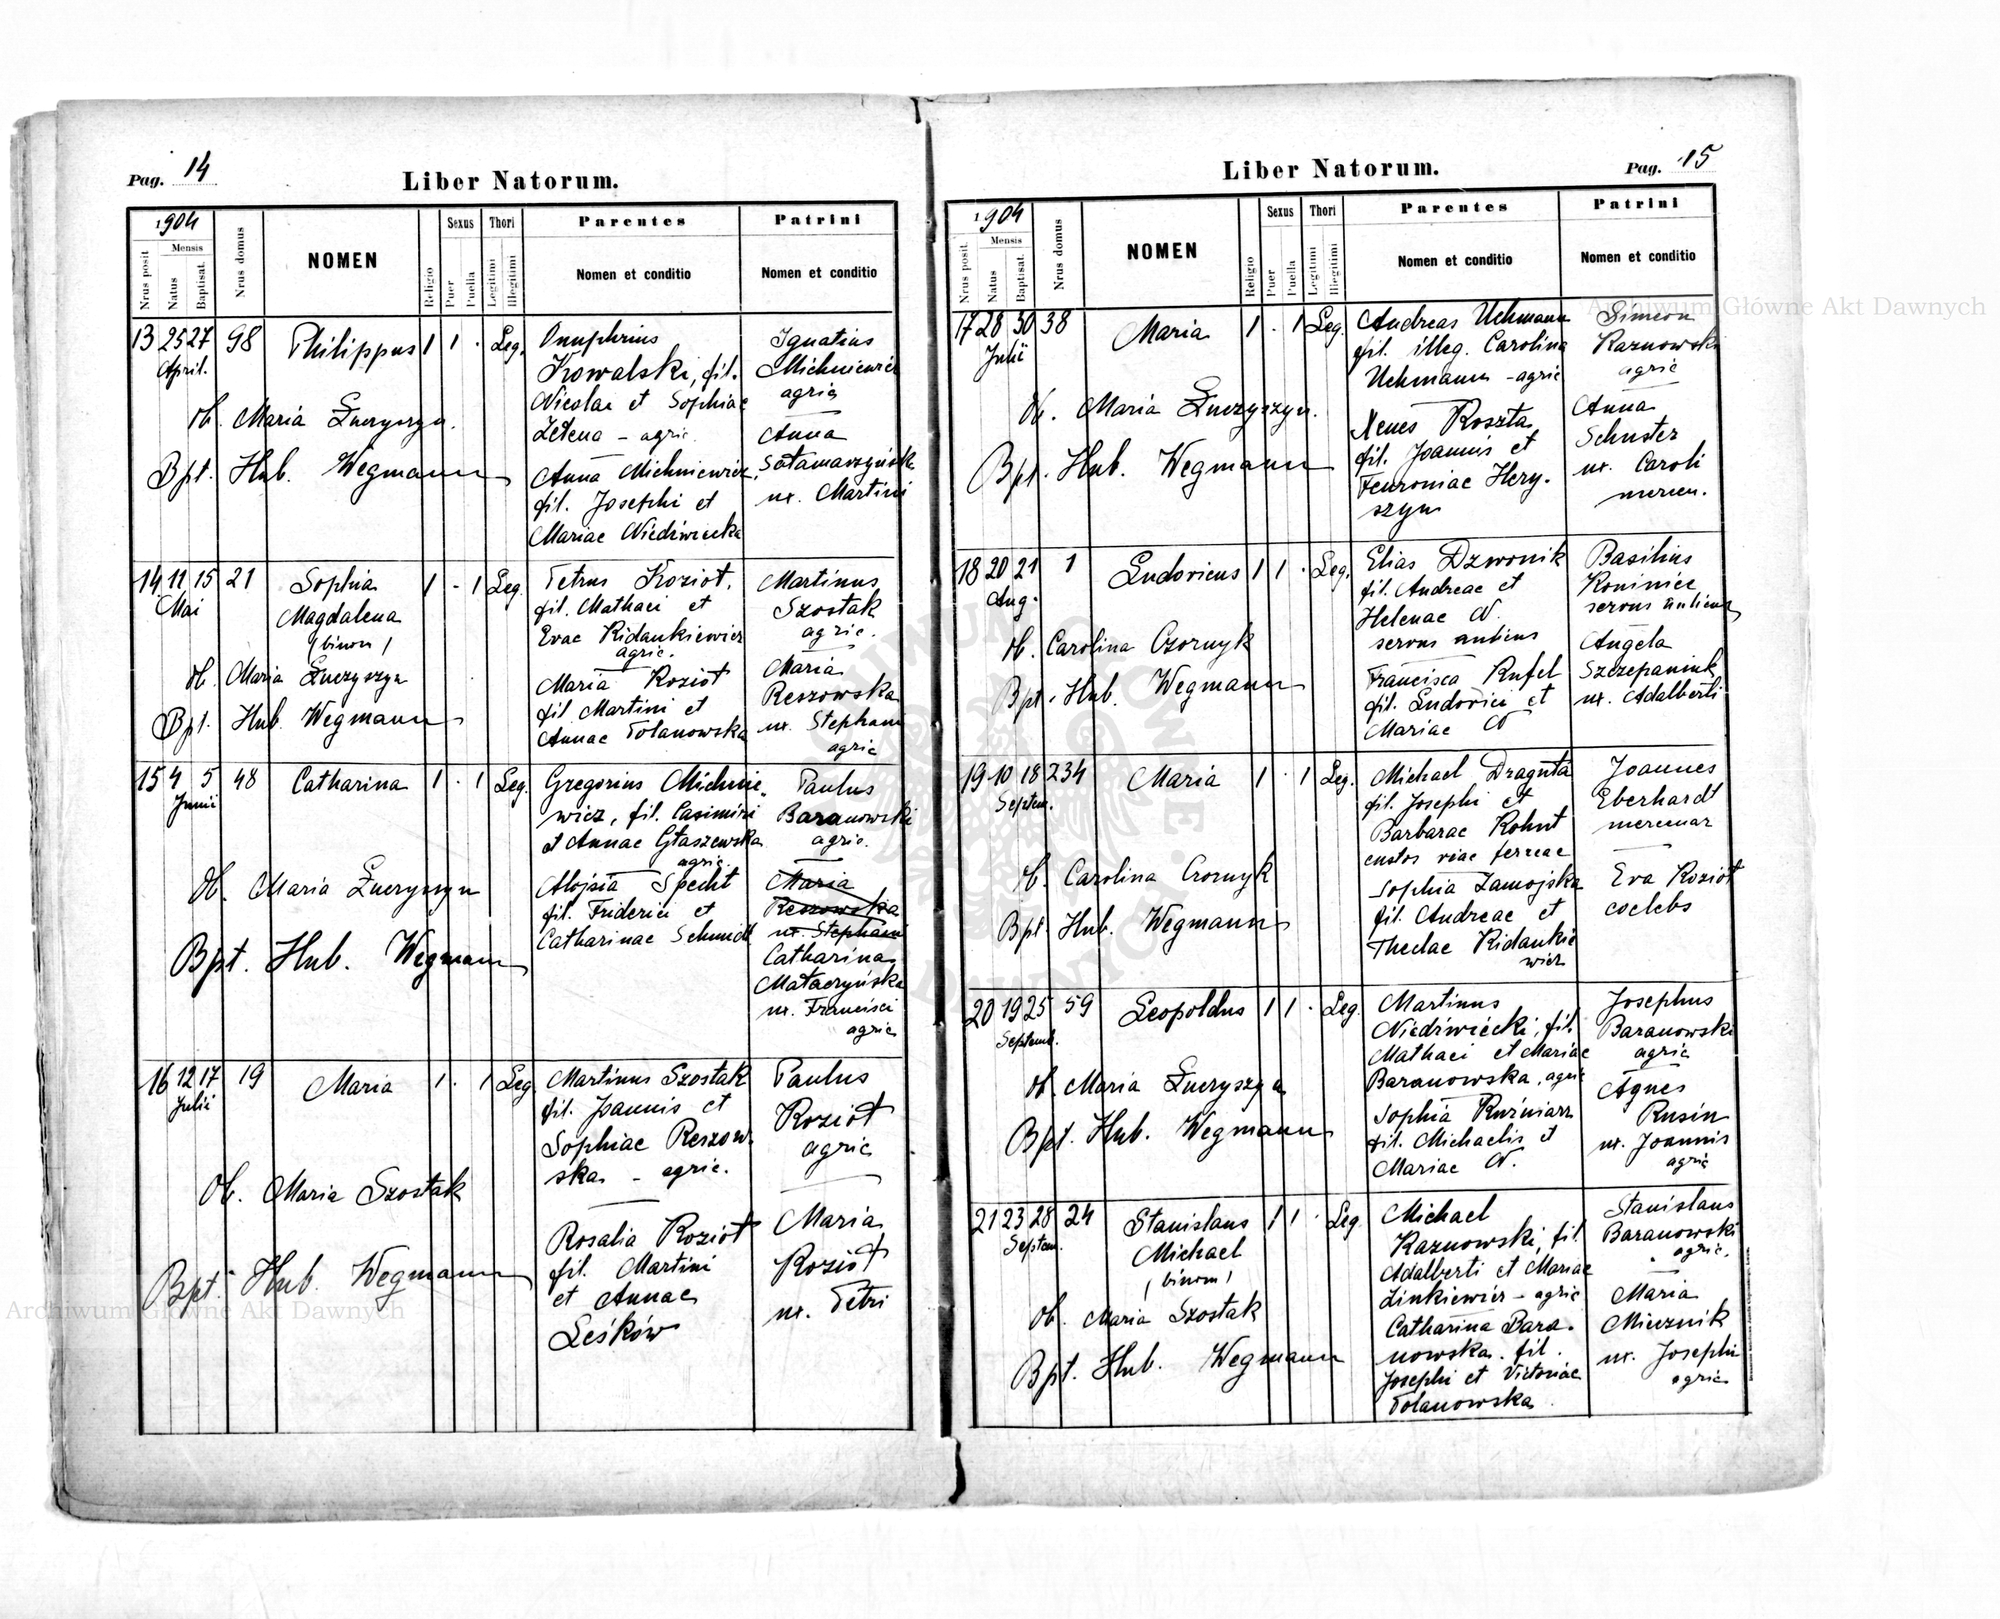 Pag. 14
Liber Natorum.
1904
Mensis
Nrus posit
Natus
Baptisat.
Nrus domus
NOMEN
Religio
Sexus
Puer
Puella
Thori
Legitimi
Illegitimi
Parentes
Nomen et conditio
Patrini
Nomen et conditio
13 25 27 98 Philippus 1 1 . Leg.
April.
Ob. Maria Łuczyszyn.
Bpt. Hub. Wegmann
Onuphrius
Kowalski, fil.
Nicolai et Sophiae
Zelena - agric.
Anna Michniewicz
fil. Josephi et
Mariae Niedźwiecka
Ignatius
Michniewicz
agric
Anna
ux. Martini
14 11 15 21 Sophia 1 - 1 Leg.
Mai
Magdalena
/binom/
Ob. Maria Łuczyszyn
Bpt. Hub. Wegmann
Petrus Kozioł,
fil. Mathaei et
Evae Ridankiewicz
agric.
Maria Kozioł
fil Martini et
Annae Polanowska
Martinus
Szostak
agric.
Maria
Reszowska
ux. Stephani
agric
15 4 5 48 Catharina 1 . 1 Leg.
Junii
Ob. Maria Łuczyszyn
Bpt. Hub. Wegmann
Gregorius Michnie-
wicz, fil. Casimiri
et Annae Głaszewska
agric.
Alojsia Specht
fil. Friderici et
Catharinae Schmidt
Paulus
Baranowski
agric.
Maria
Reszowska
ux. Stephani
Catharina
Mataczyńska
ux. Francisci
agric
16 12 17 19 Maria 1 . 1 Leg
Julii
Ob. Maria Szostak
Bpt. Hub. Wegmann
Martinus Szostak
fil. Joannis et
Sophiae Reszow
ska - agric.
Rosalia Kozioł
fil. Martini
et Annae
Leśków
Paulus
Kozioł
agric
Maria
Kozioł
ux. Petri
Liber Natorum.
Pag. 15
1904
Mensis
Nrus posit.
Natus
Baptisat.
Nrus domus
NOMEN
Religio
Sexus
Puer
Puella
Thori
Legitimi
Illegitimi
Parentes
Nomen et conditio
Patrini
Nomen et conditio
17 28 30 38 Maria 1 . 1 Leg.
Julii
Ob. Maria Łuczyszyn.
Bpt. Hub. Wegmann
Andreas Uchmann
fil. illeg. Carolina
Uchmann - agric
Roszta
fil. Joannis et
Feuroniae Hery-
szyn
Simeon
Kaznowski
agric
Anna
Schuster
ux. Caroli
mercen.
18 20 21 1 Ludovicus 1 1 . Leg.
Aug.
Ob. Carolina Czornyk
Bpt. Hub. Wegmann
Elias Dzwonik
fil. Andreae et
Helenae N.
servus
Francisca Rufel
fil. Ludovici et
Mariae N
Basilius
servus
Angela
Szczepaniuk
ux. Adalberti
19 10 18 234 Maria 1 . 1 Leg.
Septem.
Ob. Carolina Czornyk
Bpt. Hub. Wegmann
Michael Draguła
fil. Josephi et
Barbarae Kohut
custos viae ferreae
Sophia Zamojska
fil. Andreae et
Theclae Ridankie
wicz
Joannes
Eberhardt
mercenar
Eva Kozioł
coelebs
20 19 25 59 Leopoldus 1 1 . Leg.
Septemb.
Ob. Maria Łuczyszyn
Bpt. Hub. Wegmann
Martinus
Niedźwiecki, fil.
Mathaei et Mariae
Baranowska, agric
Sophia Kuźniarz
fil. Michaelis et
Mariae N.
Josephus
Baranowski
agric
Agnes
Rusin
ux. Joannis
agric
21 23 28 24 Stanislaus 1 1 . Leg
Septem.
Michael
/binom/
Ob. Maria Szostak
Bpt. Hub. Wegmann
Michael
Kaznowski, fil.
Adalberti et Mariae
Linkiewicz - agric
Catharina Bara-
nowska fil.
Josephi et Victoriae
Polanowska
Stanislaus
Baranowski
agric.
Maria
Miecznik
ux. Josephi
agric
Archiwum Główne Akt Dawnych
Archiwum Główne Akt Dawnych
ARCHIWUM GŁÓWNE AKT DAWNYCH